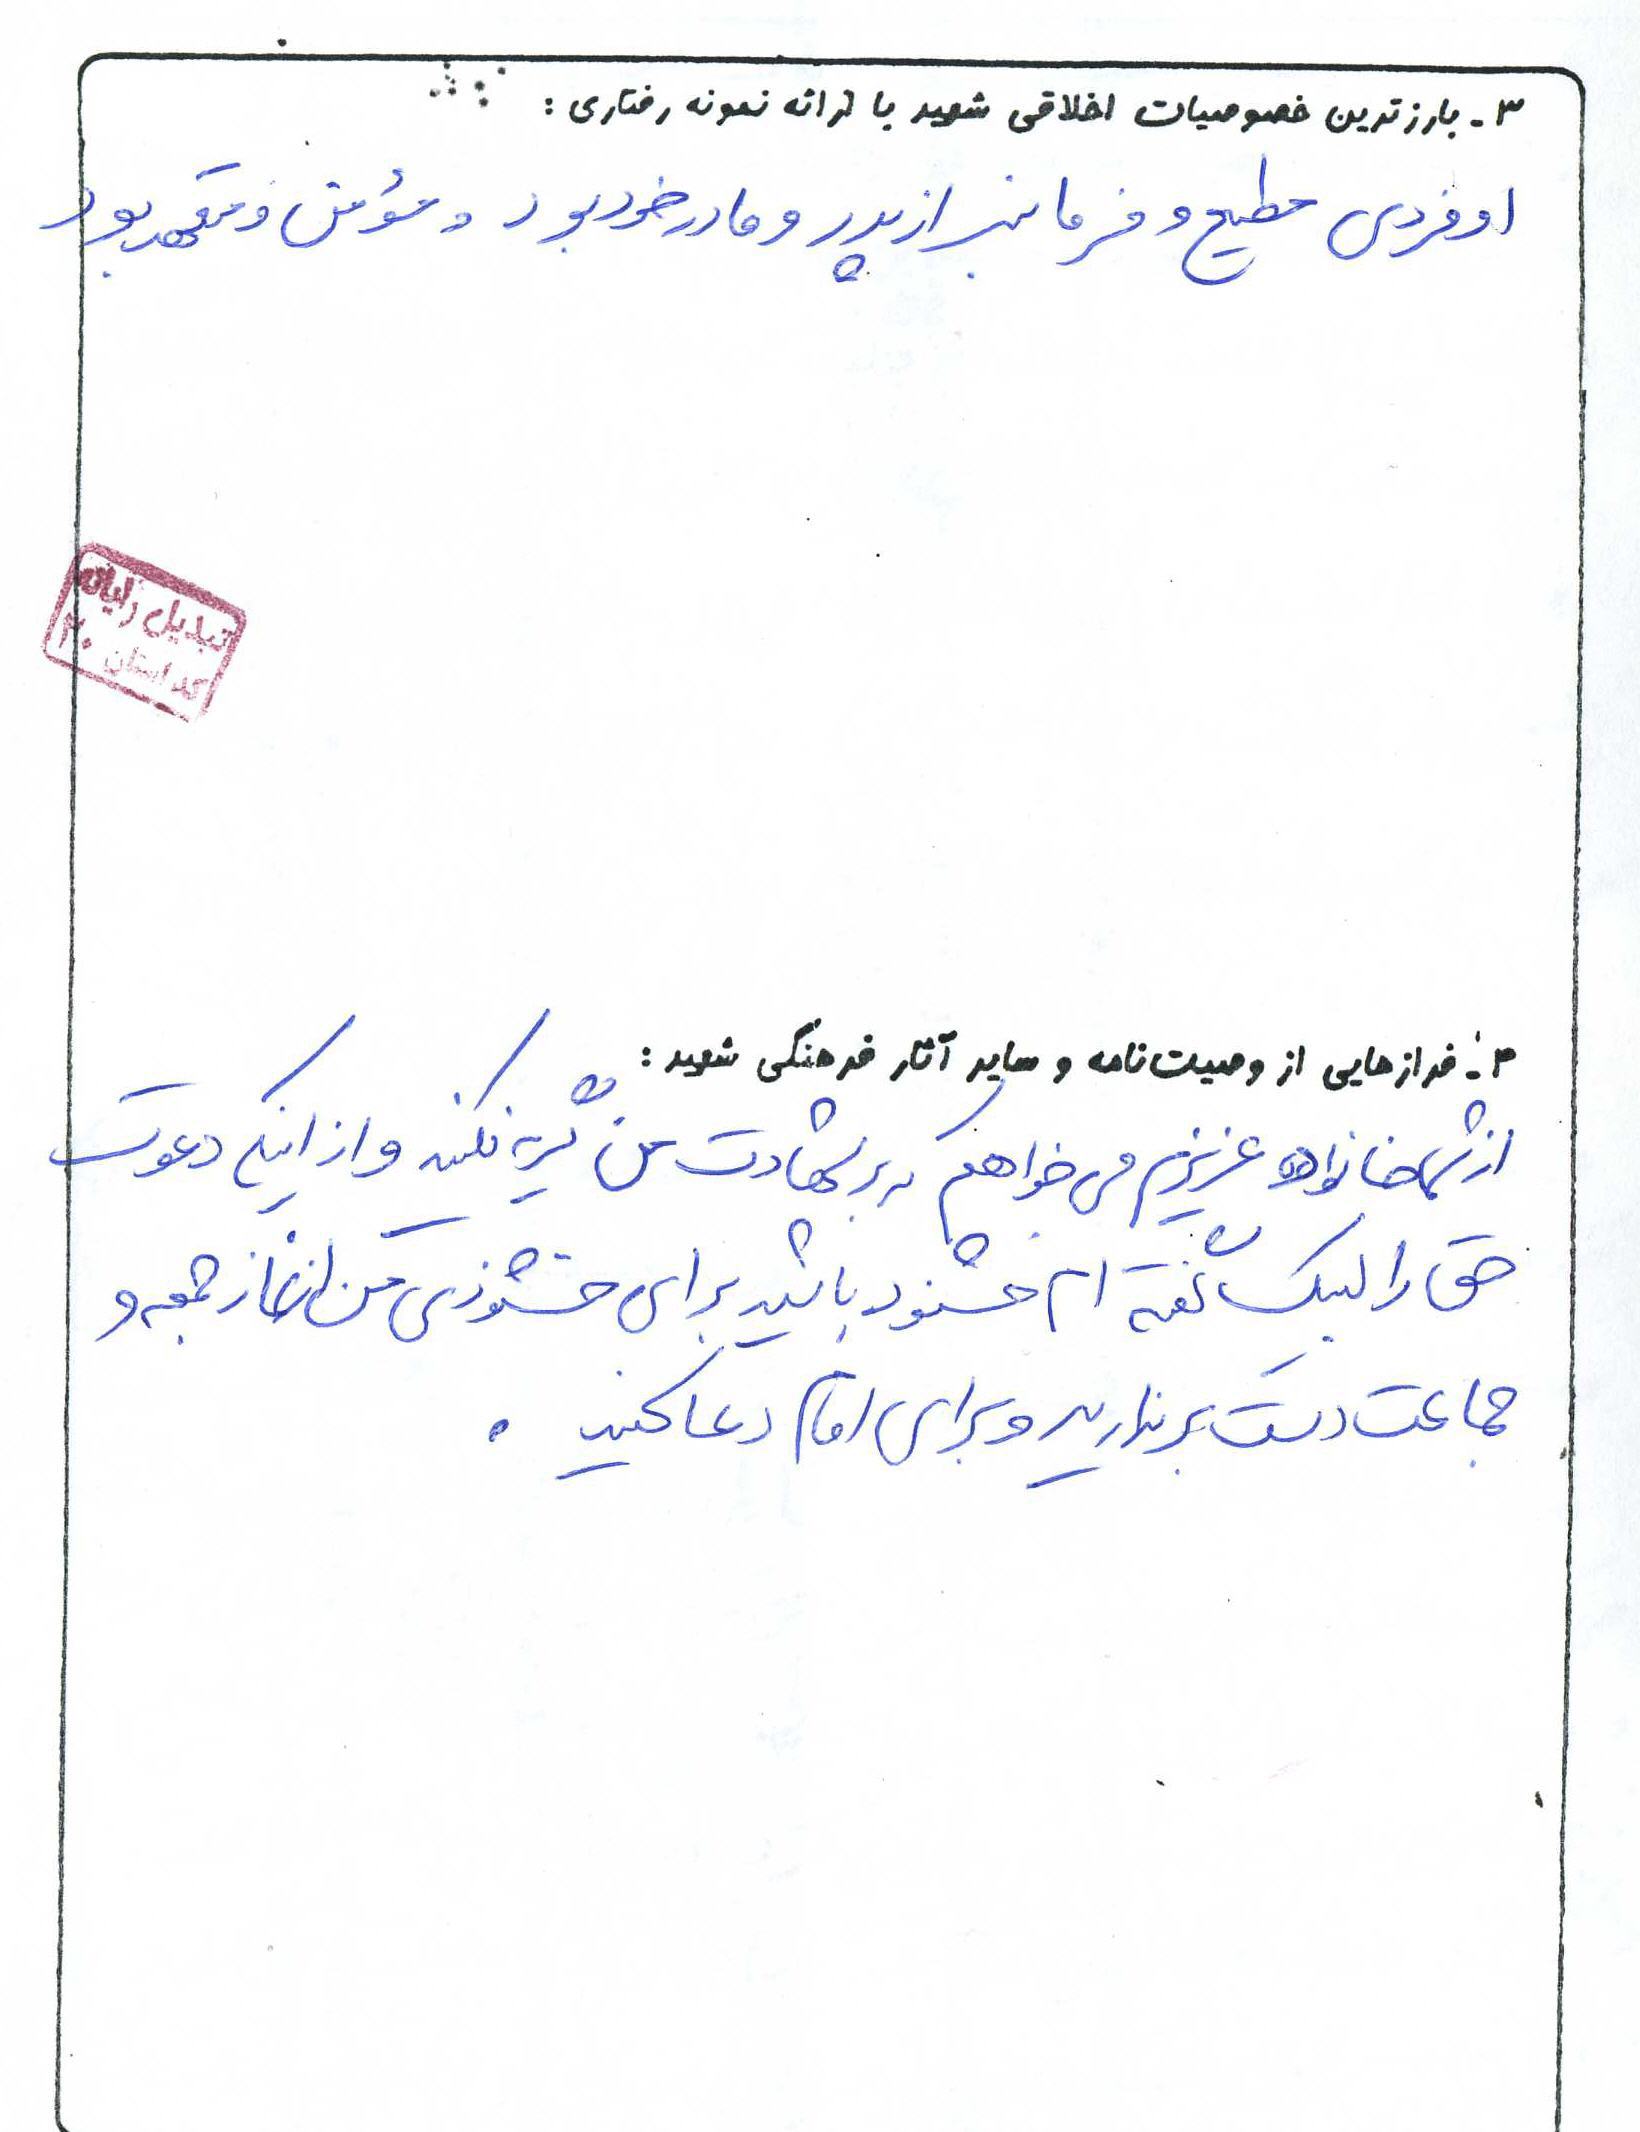 ۳- بارزترین خصوصیات اخلاقی شهید با ارائه نمونه رفتاری :
او فردی مطیع و فرمانبر از پدر و مادر خود بود و مؤمن و متعهد بود
تبدیل رایانه
کد استان ۳۰
۴- فرازهایی از وصیت‌نامه و سایر آثار فرهنگی شهید :
از شما خانواده عزیزم می خواهم که بر شهادت من گریه نکنید و از اینکه دعوت
حق را لبیک گفته ام خشنود باشید برای خشنودی من از نماز جمعه و
جماعت دست برندارید و برای امام دعا کنید .